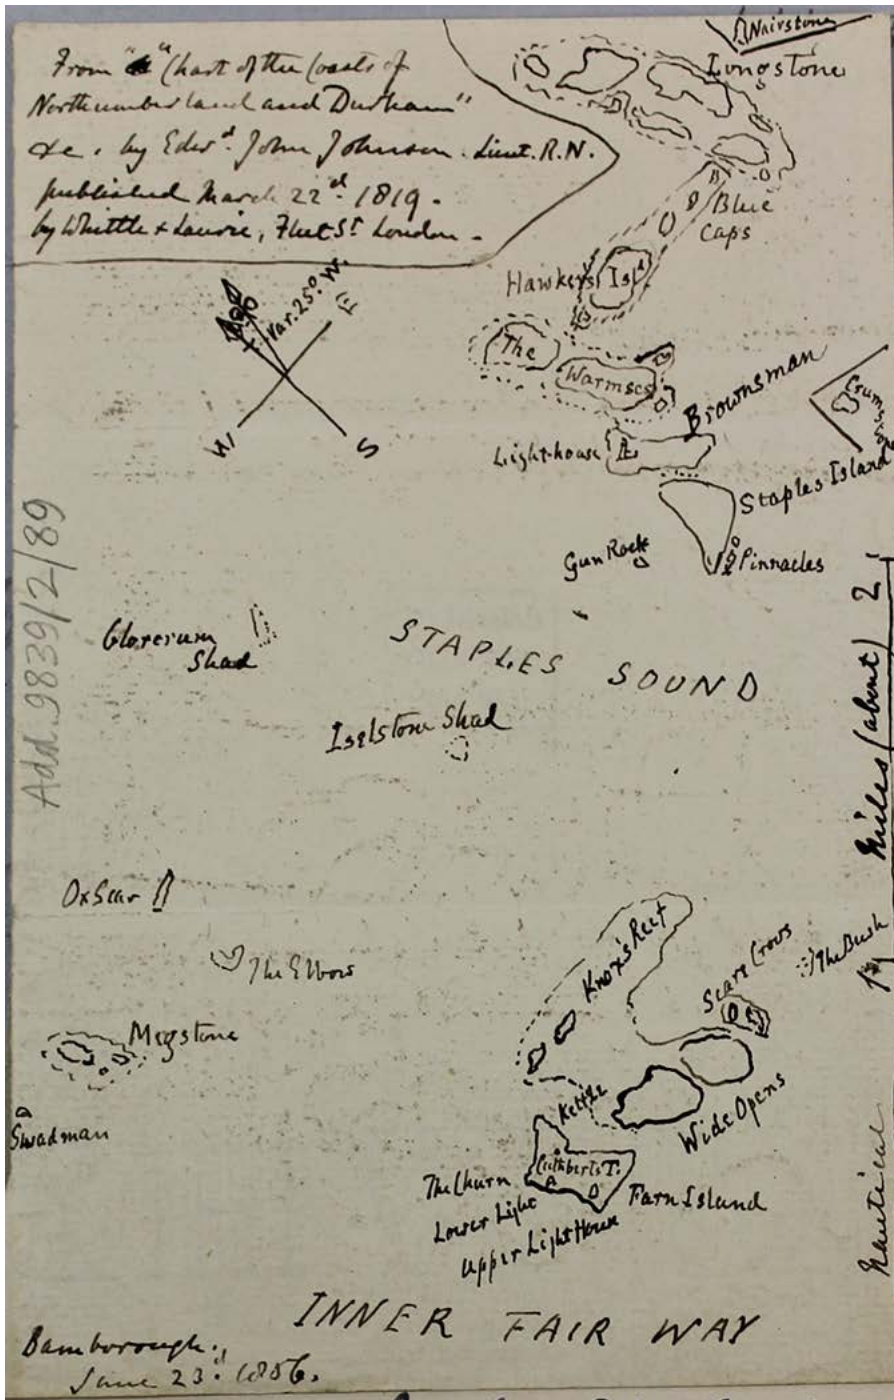 From "a" Chart of the Coasts of
Northumberland and Durham"
&c. by Edwd. John Johnson. Lieut. R.N.
published March 22d. 1819.
by Whittle & Laurie, Fleet St. London.
Nairstone
Longstone
Blue
Caps
Hawkers Isld
Var. 25° W.
E
W
S
The
Warmses
Brownsman
Crumstone
Light-house
Staples Island
Gun Rock
Pinnacles
Glororum
Shad
STAPLES SOUND
Iselstone Shad
Add. 9839/2/89
Nautical Miles (about) 2
1
Ox Scar
The Elbow
Knox's Reef
Scare Crows
The Bush
Megstone
Swadman
Kettle
Wide Opens
Cuthberts T.
The Churn
Lower Light
Upper Light House
Farn Island
INNER FAIR WAY
Bamborough.,
June 23d. 1856.